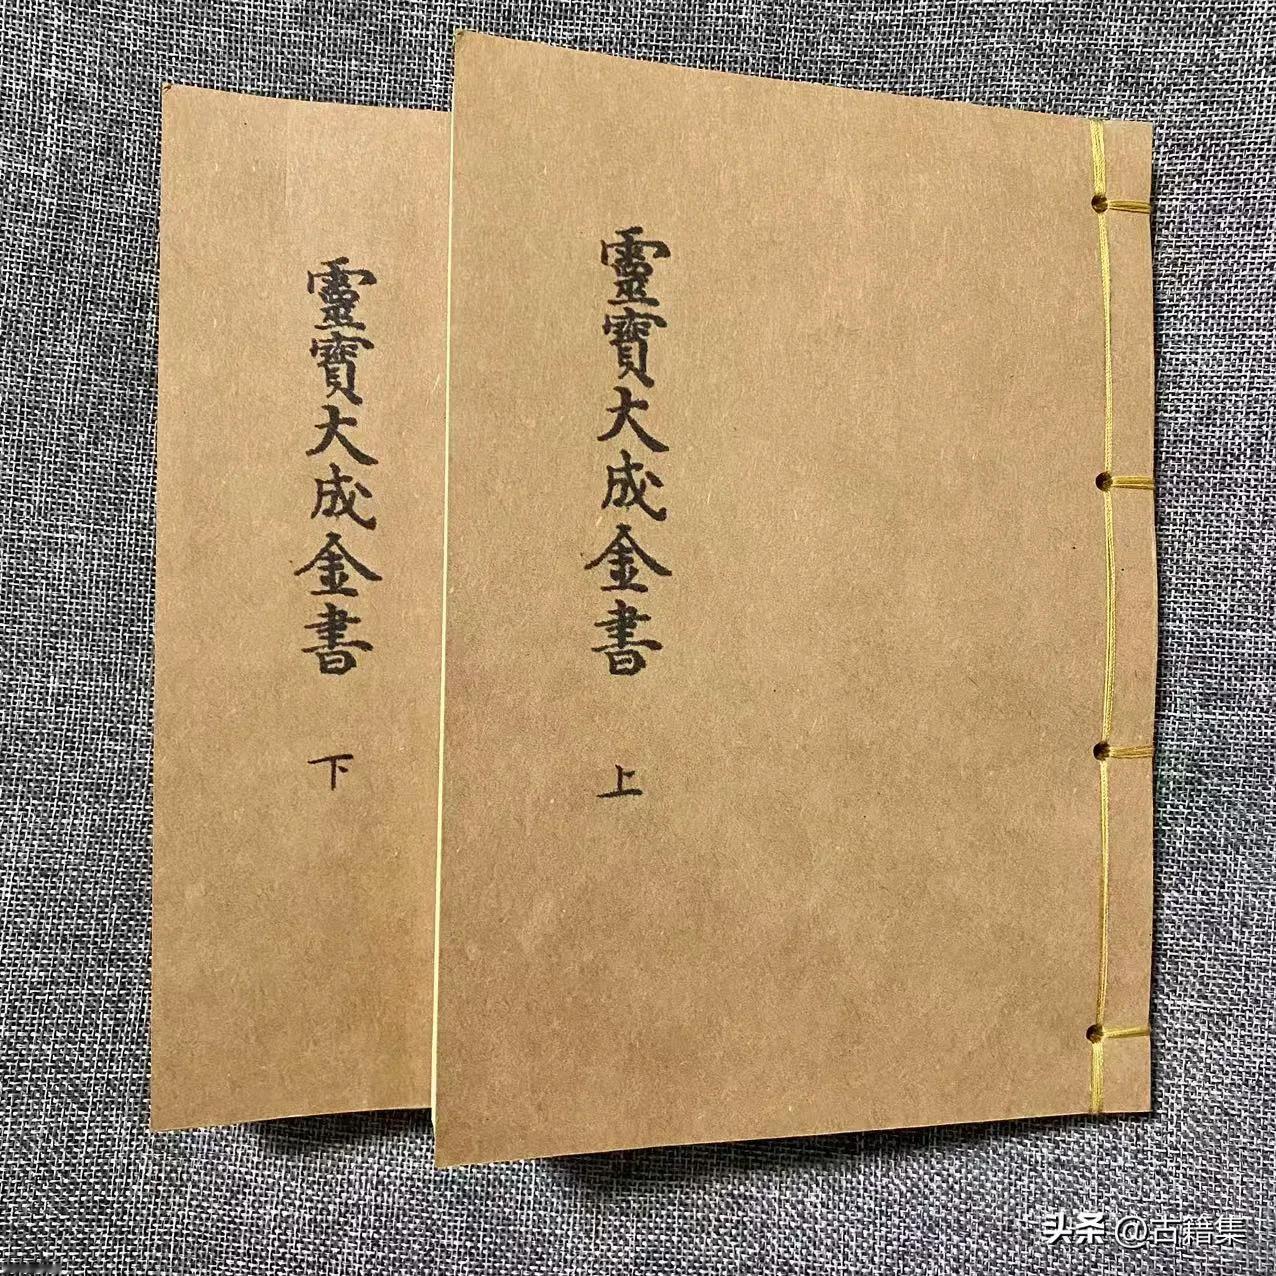 靈寶大成金書
上
靈寶大成金書
下
头条 @古籍集